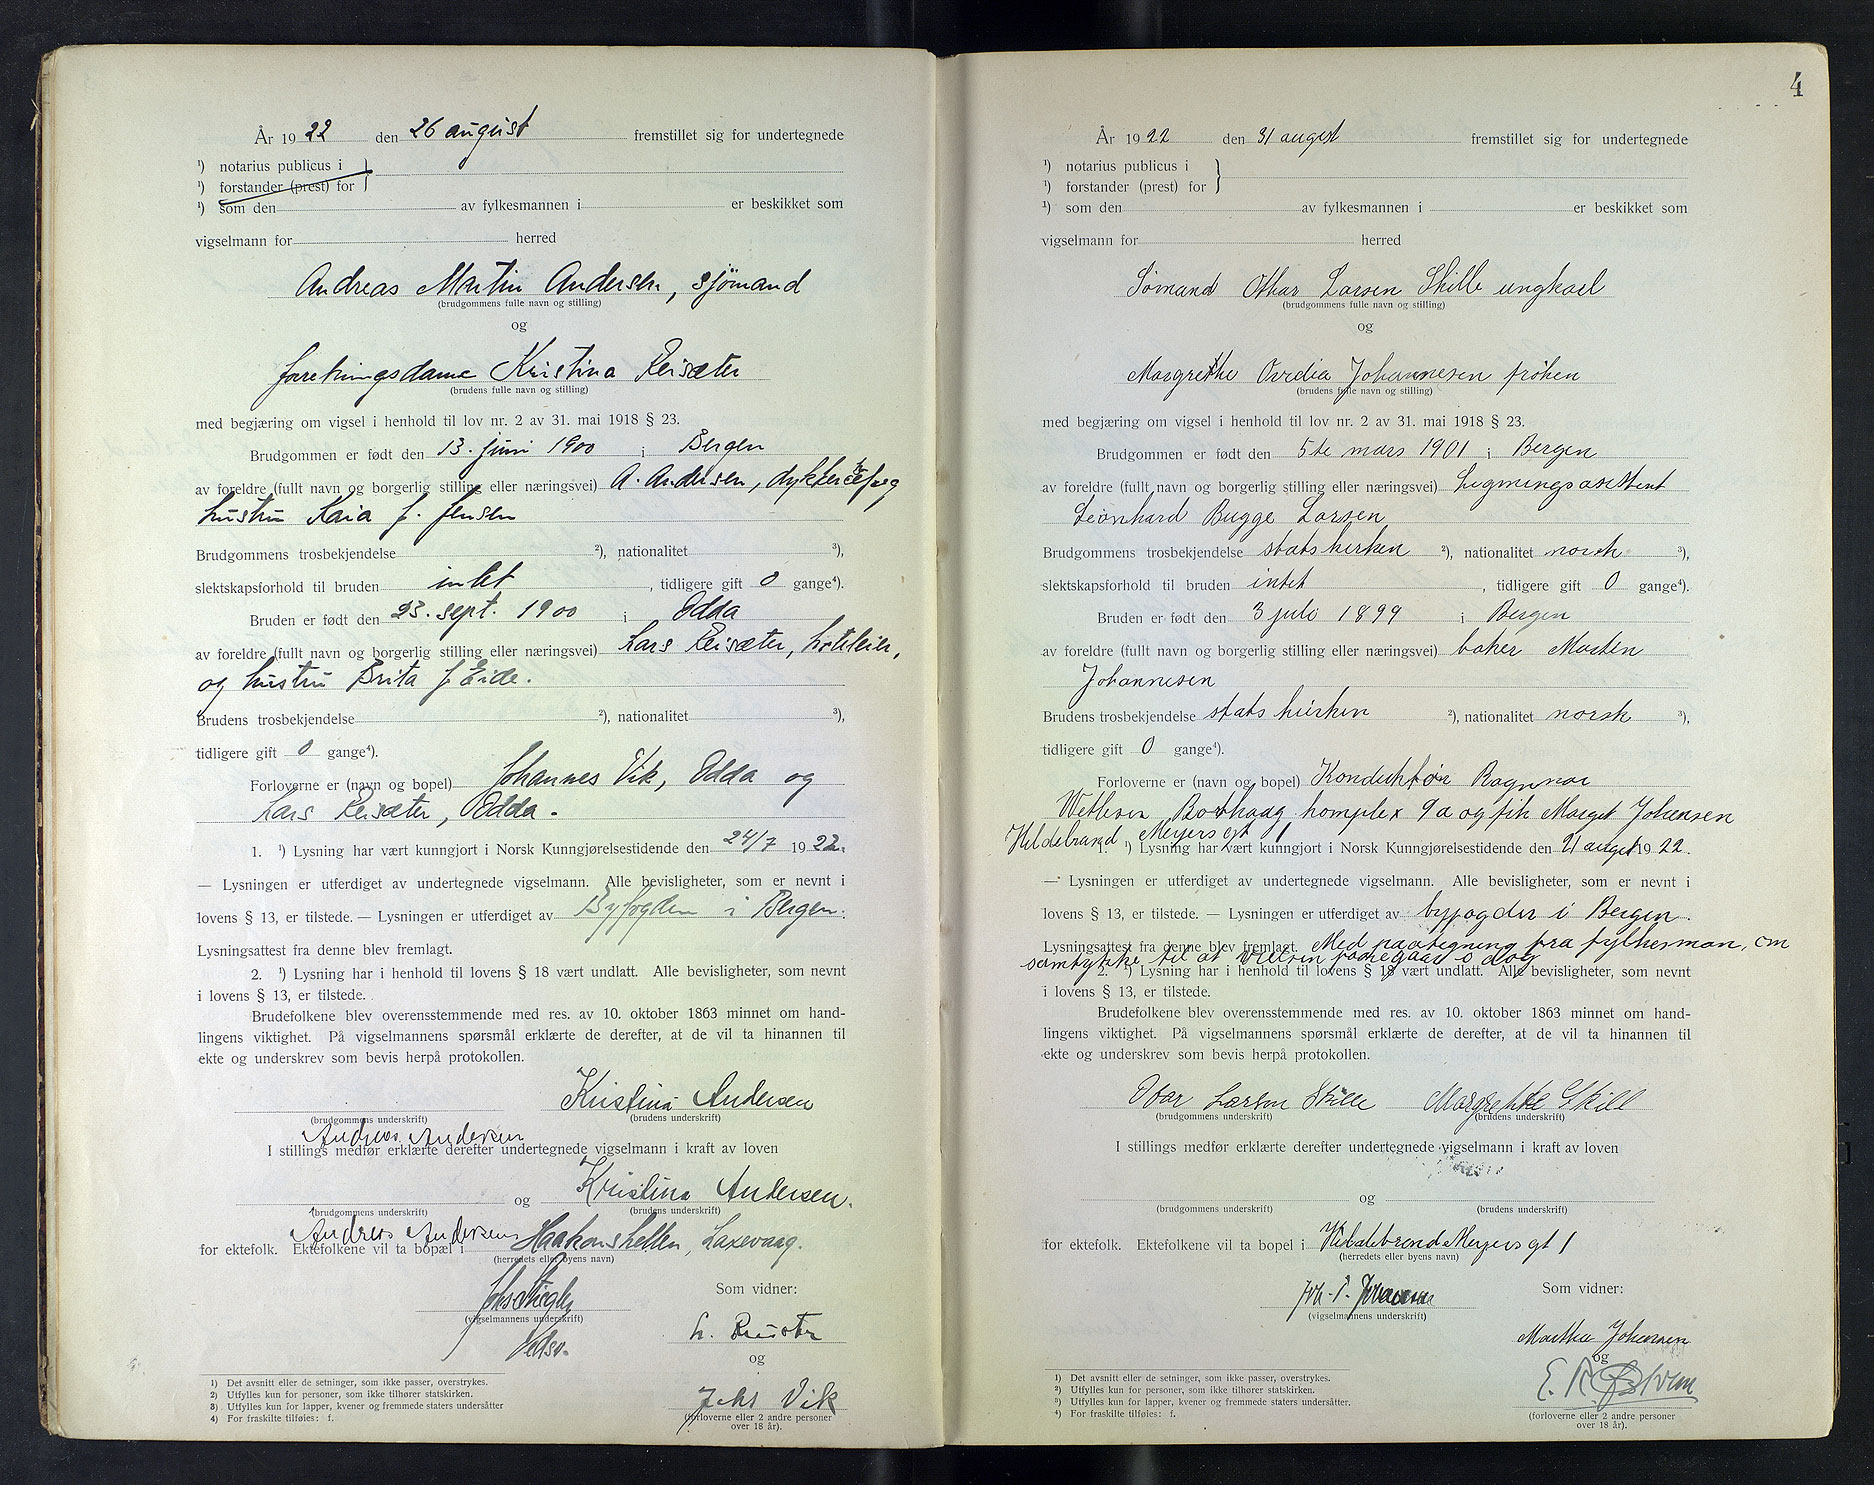 År 1922 den 26 august fremstillet sig for undertegnede
¹) notarius publicus i
¹) forstander (prest) for
¹) som den av fylkesmannen i er beskikket som
vigselmann for herred
Andreas Martin Andersen, sjömand
(brudgommens fulle navn og stilling)
og
forretningsdame Kristina Reisæter
(brudens fulle navn og stilling)
med begjæring om vigsel i henhold til lov nr. 2 av 31. mai 1918 § 23.
Brudgommen er født den 13. juni 1900 i Bergen
av foreldre (fullt navn og borgerlig stilling eller næringsvei) A. Andersen,
hustru Kaia f. Jensen
Brudgommens trosbekjendelse ²), nationalitet ³),
slektskapsforhold til bruden intet, tidligere gift 0 gange⁴).
Bruden er født den 23. sept. 1900 i Odda
av foreldre (fullt navn og borgerlig stilling eller næringsvei) Lars Reisæter,
og hustru Brita f Eide.
Brudens trosbekjendelse ²), nationalitet ³),
tidligere gift 0 gange⁴).
Forloverne er (navn og bopel) Johannes Vik, Odda og
Lars Reisæter, Odda.
1. ¹) Lysning har vært kunngjort i Norsk Kunngjørelsestidende den 24/7 1922.
— Lysningen er utferdiget av undertegnede vigselmann. Alle bevisligheter, som er nevnt i
lovens § 13, er tilstede. — Lysningen er utferdiget av Byfogden i Bergen.
Lysningsattest fra denne blev fremlagt.
2. ¹) Lysning har i henhold til lovens § 18 vært undlatt. Alle bevisligheter, som nevnt
i lovens § 13, er tilstede.
Brudefolkene blev overensstemmende med res. av 10. oktober 1863 minnet om hand-
lingens viktighet. På vigselmannens spørsmål erklærte de derefter, at de vil ta hinannen til
ekte og underskrev som bevis herpå protokollen.
Kristina Andersen
(brudgommens underskrift) (brudens underskrift)
Andreas Andersen
I stillings medfør erklærte derefter undertegnede vigselmann i kraft av loven
og Kristina Andersen.
(brudgommens underskrift) (brudens underskrift)
Andreas Andersen
for ektefolk. Ektefolkene vil ta bopæl i Haakonshellen, Laxevaag.
(herredets eller byens navn)
Som vidner:
(vigselmannens underskrift)
L. Reisæter
og
Johs Vik
(forloverne eller 2 andre personer
over 18 år).
1) Det avsnitt eller de setninger, som ikke passer, overstrykes.
2) Utfylles kun for personer, som ikke tilhører statskirken.
3) Utfylles kun for lapper, kvener og fremmede staters undersåtter
4) For fraskilte tilføies: f.
4
År 1922 den 31 augst fremstillet sig for undertegnede
¹) notarius publicus i
¹) forstander (prest) for
¹) som den av fylkesmannen i er beskikket som
vigselmann for herred
Sømand Othar Larsen Skille ungkael
(brudgommens fulle navn og stilling)
og
Margrethe Ovedia Johannesen fröken
(brudens fulle navn og stilling)
med begjæring om vigsel i henhold til lov nr. 2 av 31. mai 1918 § 23.
Brudgommen er født den 5te mars 1901 i Bergen
av foreldre (fullt navn og borgerlig stilling eller næringsvei) Ligningsasistent
Leonhard Bugge Larsen
Brudgommens trosbekjendelse statskirken ²), nationalitet norsk ³),
slektskapsforhold til bruden intet, tidligere gift 0 gange⁴).
Bruden er født den 3 juli 1899 i Bergen
av foreldre (fullt navn og borgerlig stilling eller næringsvei) baker Morten
Johannesen
Brudens trosbekjendelse statskirken ²), nationalitet norsk ³),
tidligere gift 0 gange⁴).
Forloverne er (navn og bopel) Konduktør Ragnvar
komplex 9a og frk Marget Johensen
Hildebrand Meyersgt 1
1. ¹) Lysning har vært kunngjort i Norsk Kunngjørelsestidende den 21 augst 1922.
— Lysningen er utferdiget av undertegnede vigselmann. Alle bevisligheter, som er nevnt i
lovens § 13, er tilstede. — Lysningen er utferdiget av byfogder i Bergen.
Lysningsattest fra denne blev fremlagt. Med paategning fra fylkesman, om
samtykke til at vielsen foregaar i dag
2. ¹) Lysning har i henhold til lovens § 18 vært undlatt. Alle bevisligheter, som nevnt
i lovens § 13, er tilstede.
Brudefolkene blev overensstemmende med res. av 10. oktober 1863 minnet om hand-
lingens viktighet. På vigselmannens spørsmål erklærte de derefter, at de vil ta hinannen til
ekte og underskrev som bevis herpå protokollen.
Otar Larsen Skille Margrethe Skille
(brudgommens underskrift) (brudens underskrift)
I stillings medfør erklærte derefter undertegnede vigselmann i kraft av loven
og
(brudgommens underskrift) (brudens underskrift)
for ektefolk. Ektefolkene vil ta bopel i Hildebrend Meyersgt 1
(herredets eller byens navn)
Som vidner:
(vigselmannens underskrift)
Marthe Johensen
og
(forloverne eller 2 andre personer
over 18 år).
1) Det avsnitt eller de setninger, som ikke passer, overstrykes.
2) Utfylles kun for personer, som ikke tilhører statskirken.
3) Utfylles kun for lapper, kvener og fremmede staters undersåtter.
4) For fraskilte tilføies: f.